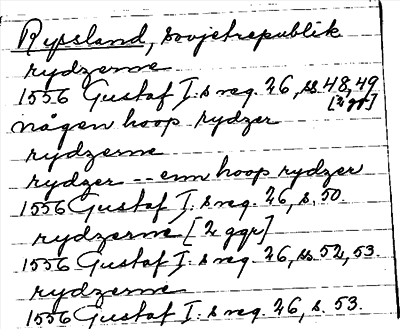 Ryssland, Sovjetrepublik
rydzerne
1556 Gustaf I:s reg. 26, ss. 48, 49
[2 ggr]
någen hoop rydzer
rydzerne
rydzer -- enn hoop rydzer
1556 Gustaf I:s reg. 26, s. 50.
rydzerne [2 ggr]
1556 Gustaf I:s reg. 26, ss. 52, 53.
rydzerne
1556 Gustaf I:s reg. 26, s. 53.